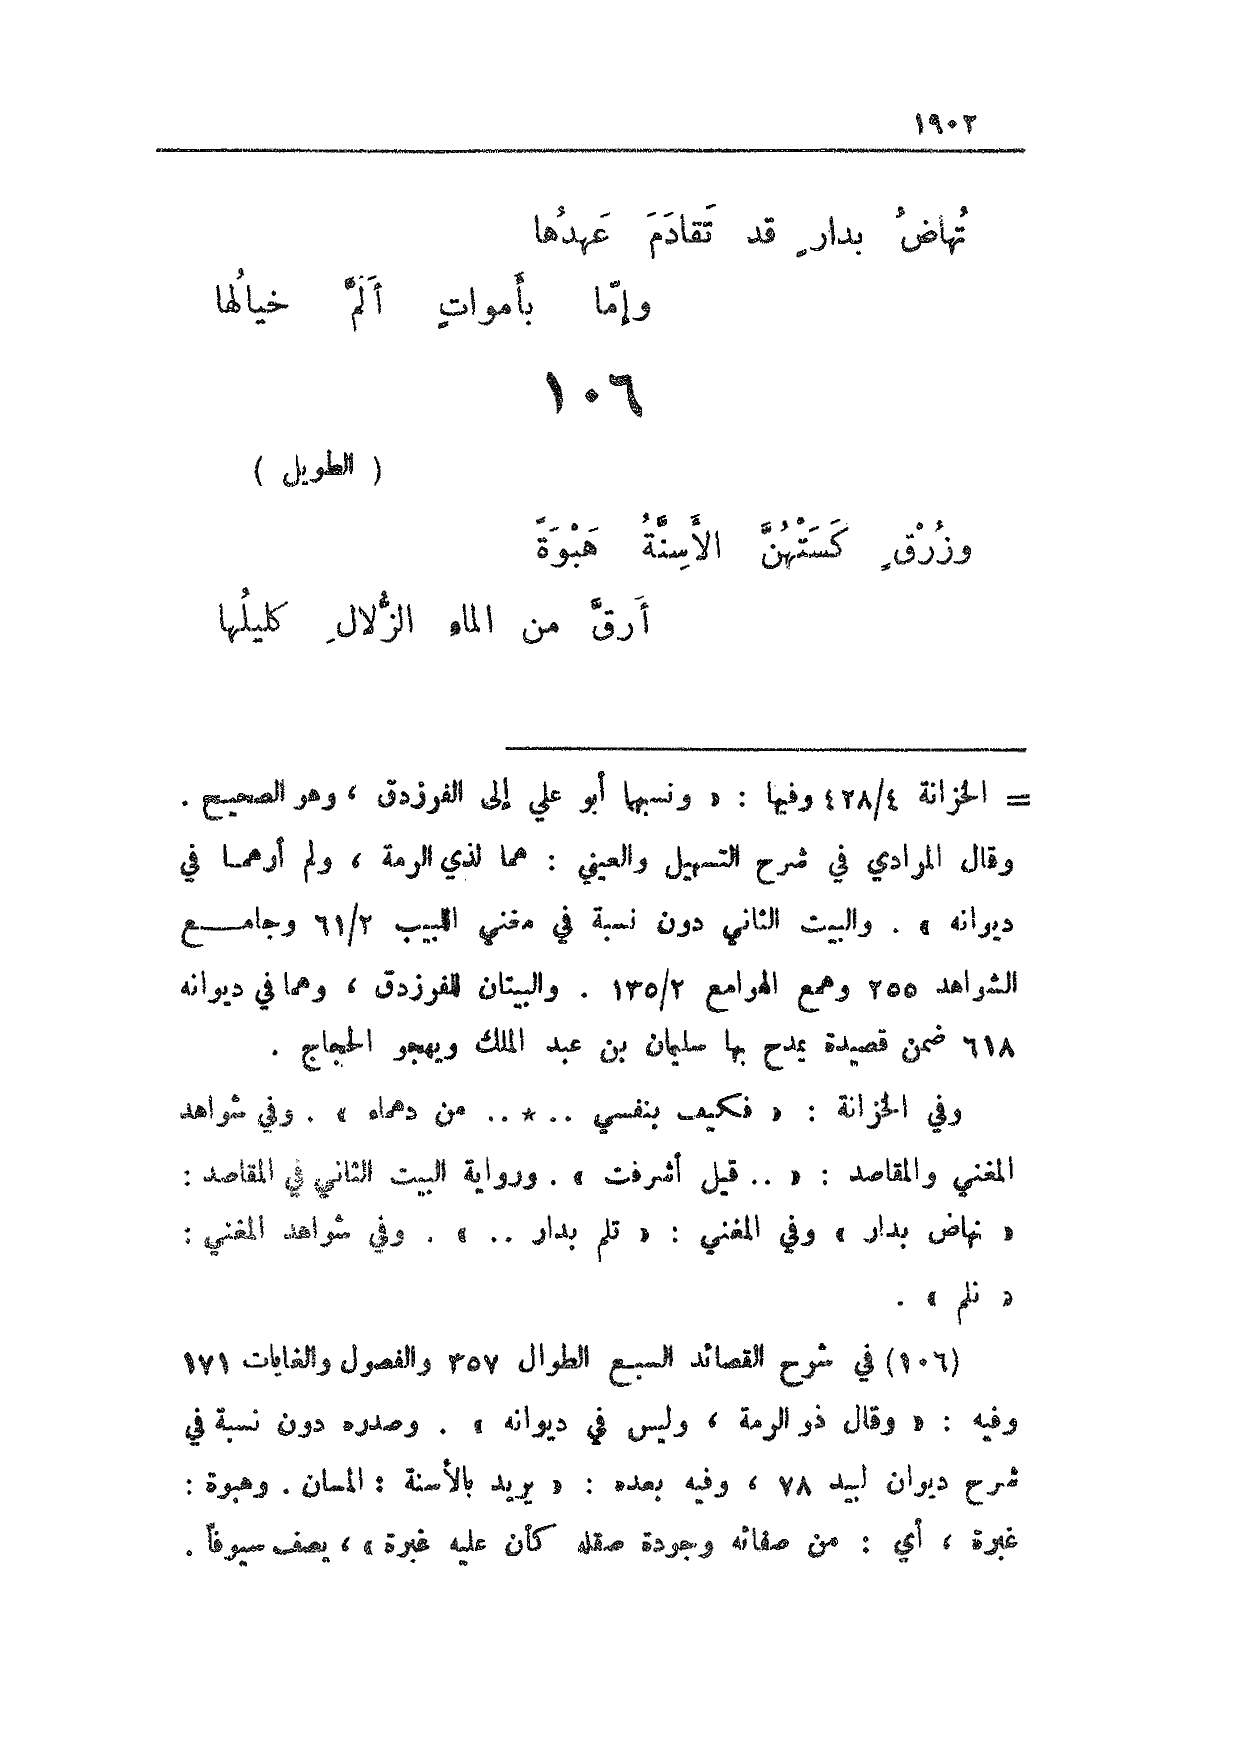 ١٩٠٢
تُهاضُ بدارٍ قد تَقادَمَ عَهدُها
وإمّا بأَمواتٍ أَلَمَّ خيالُها
١٠٦
( الطويل )
وزُرْقٍ كَسَتْهُنَّ الأَسِنَّةُ هَبْوَةً
أَرقَّ من الماءِ الزُّلالِ كليلُها
= الخزانة ٤٢٨/٤ وفيها : « ونسبها أبو علي إلى الفرزدق ، وهو الصحيح .
وقال المرادي في شرح التسهيل والعيني : هما لذي الرمة ، ولم أرهمـا في
ديوانه » . والبيت الثاني دون نسبة في مغني اللبيب ٦١/٢ وجامــع
الشواهد ٢٥٥ وهمع الهوامع ١٣٥/٢ . والبيتان للفرزدق ، وهما في ديوانه
٦١٨ ضمن قصيدة يمدح بها سليمان بن عبد الملك ويهجو الحجاج .
وفي الخزانة : « فكيف بنفسي .. * .. من دهماء » . وفي شواهد
المغني والمقاصد : « .. قيل أشرفت » . ورواية البيت الثاني في المقاصد :
« نهاض بدار » وفي المغني : « تلم بدار .. » . وفي شواهد المغني :
« نلم » .
(١٠٦) في شرح القصائد السبع الطوال ٣٥٧ والفصول والغايات ١٧١
وفيه : « وقال ذو الرمة ، وليس في ديوانه » . وصدره دون نسبة في
شرح ديوان لبيد ٧٨ ، وفيه بعده : « يريد بالأسنة : المسان . وهبوة :
غبرة ، أي : من صفائه وجودة صقله كأن عليه غبرة » ، يصف سيوفاً .